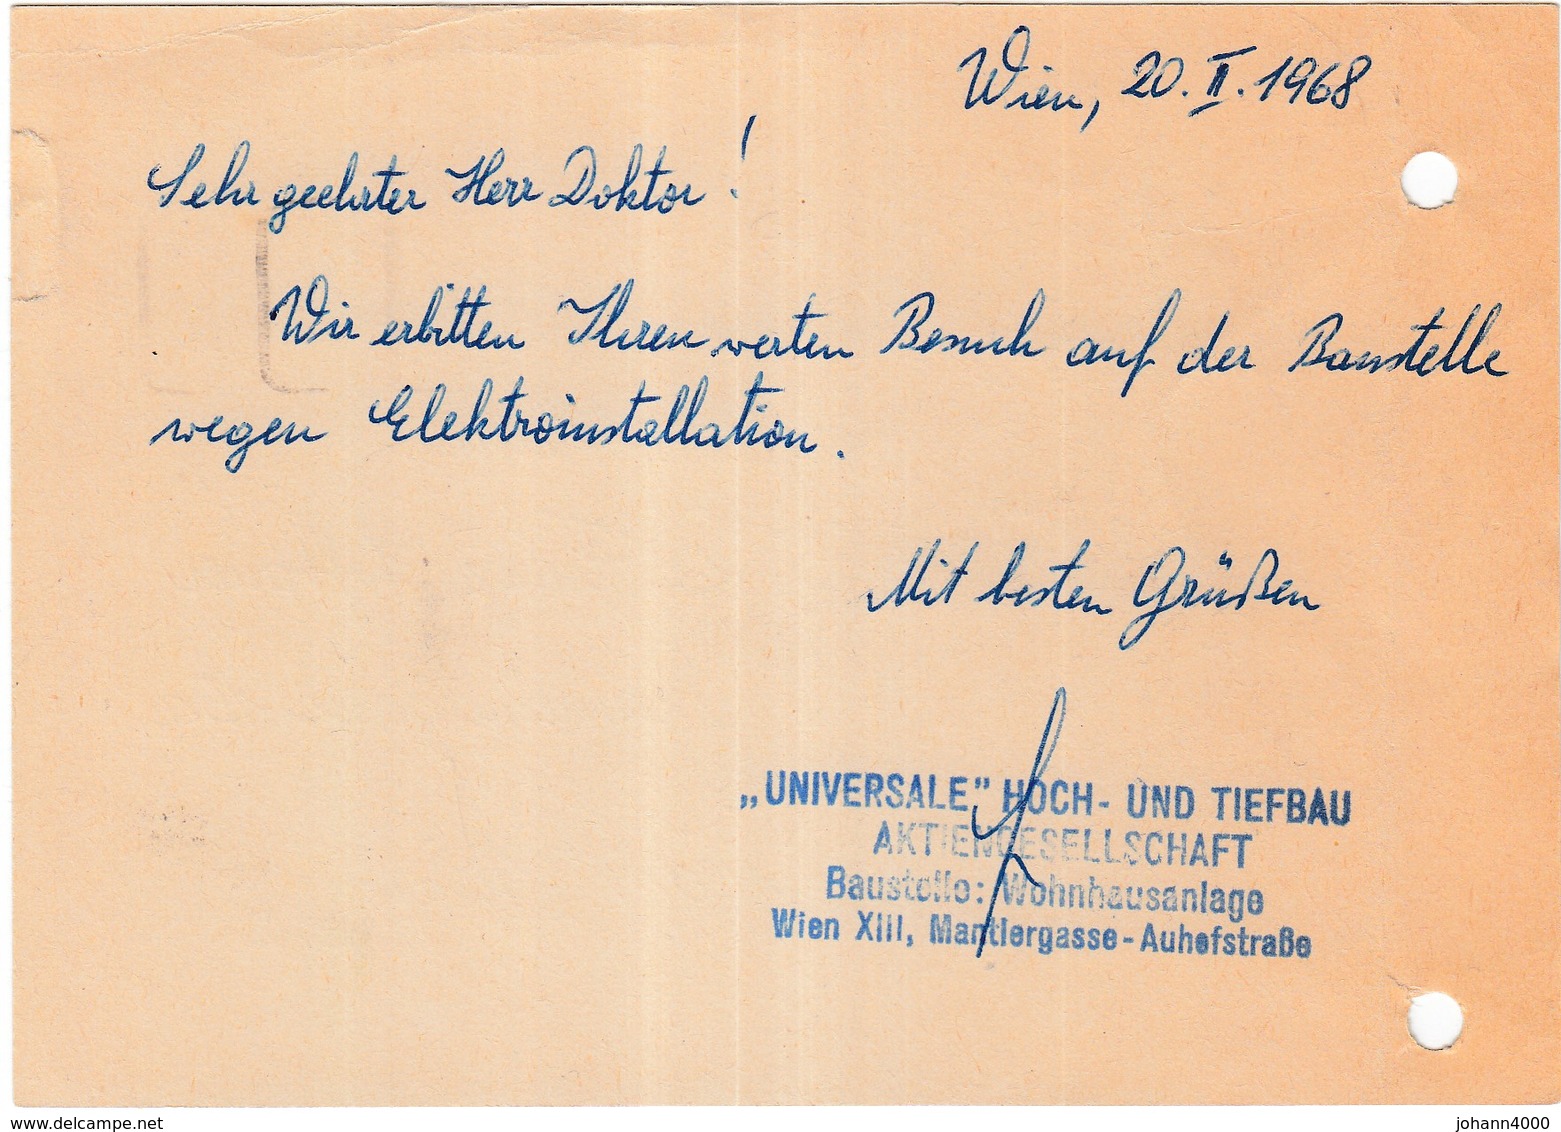 Wien, 20. II. 1968
Sehr geehrter Herr Doktor!
Wir erbitten Ihren werten Besuch auf der Baustelle
wegen Elektroinstallation.
Mit besten Grüßen
„UNIVERSALE" HOCH- UND TIEFBAU
AKTIENGESELLSCHAFT
Baustelle: Wohnhausanlage
Wien XIII, Mantlergasse - Auhofstraße
www.delcampe.net
johann4000